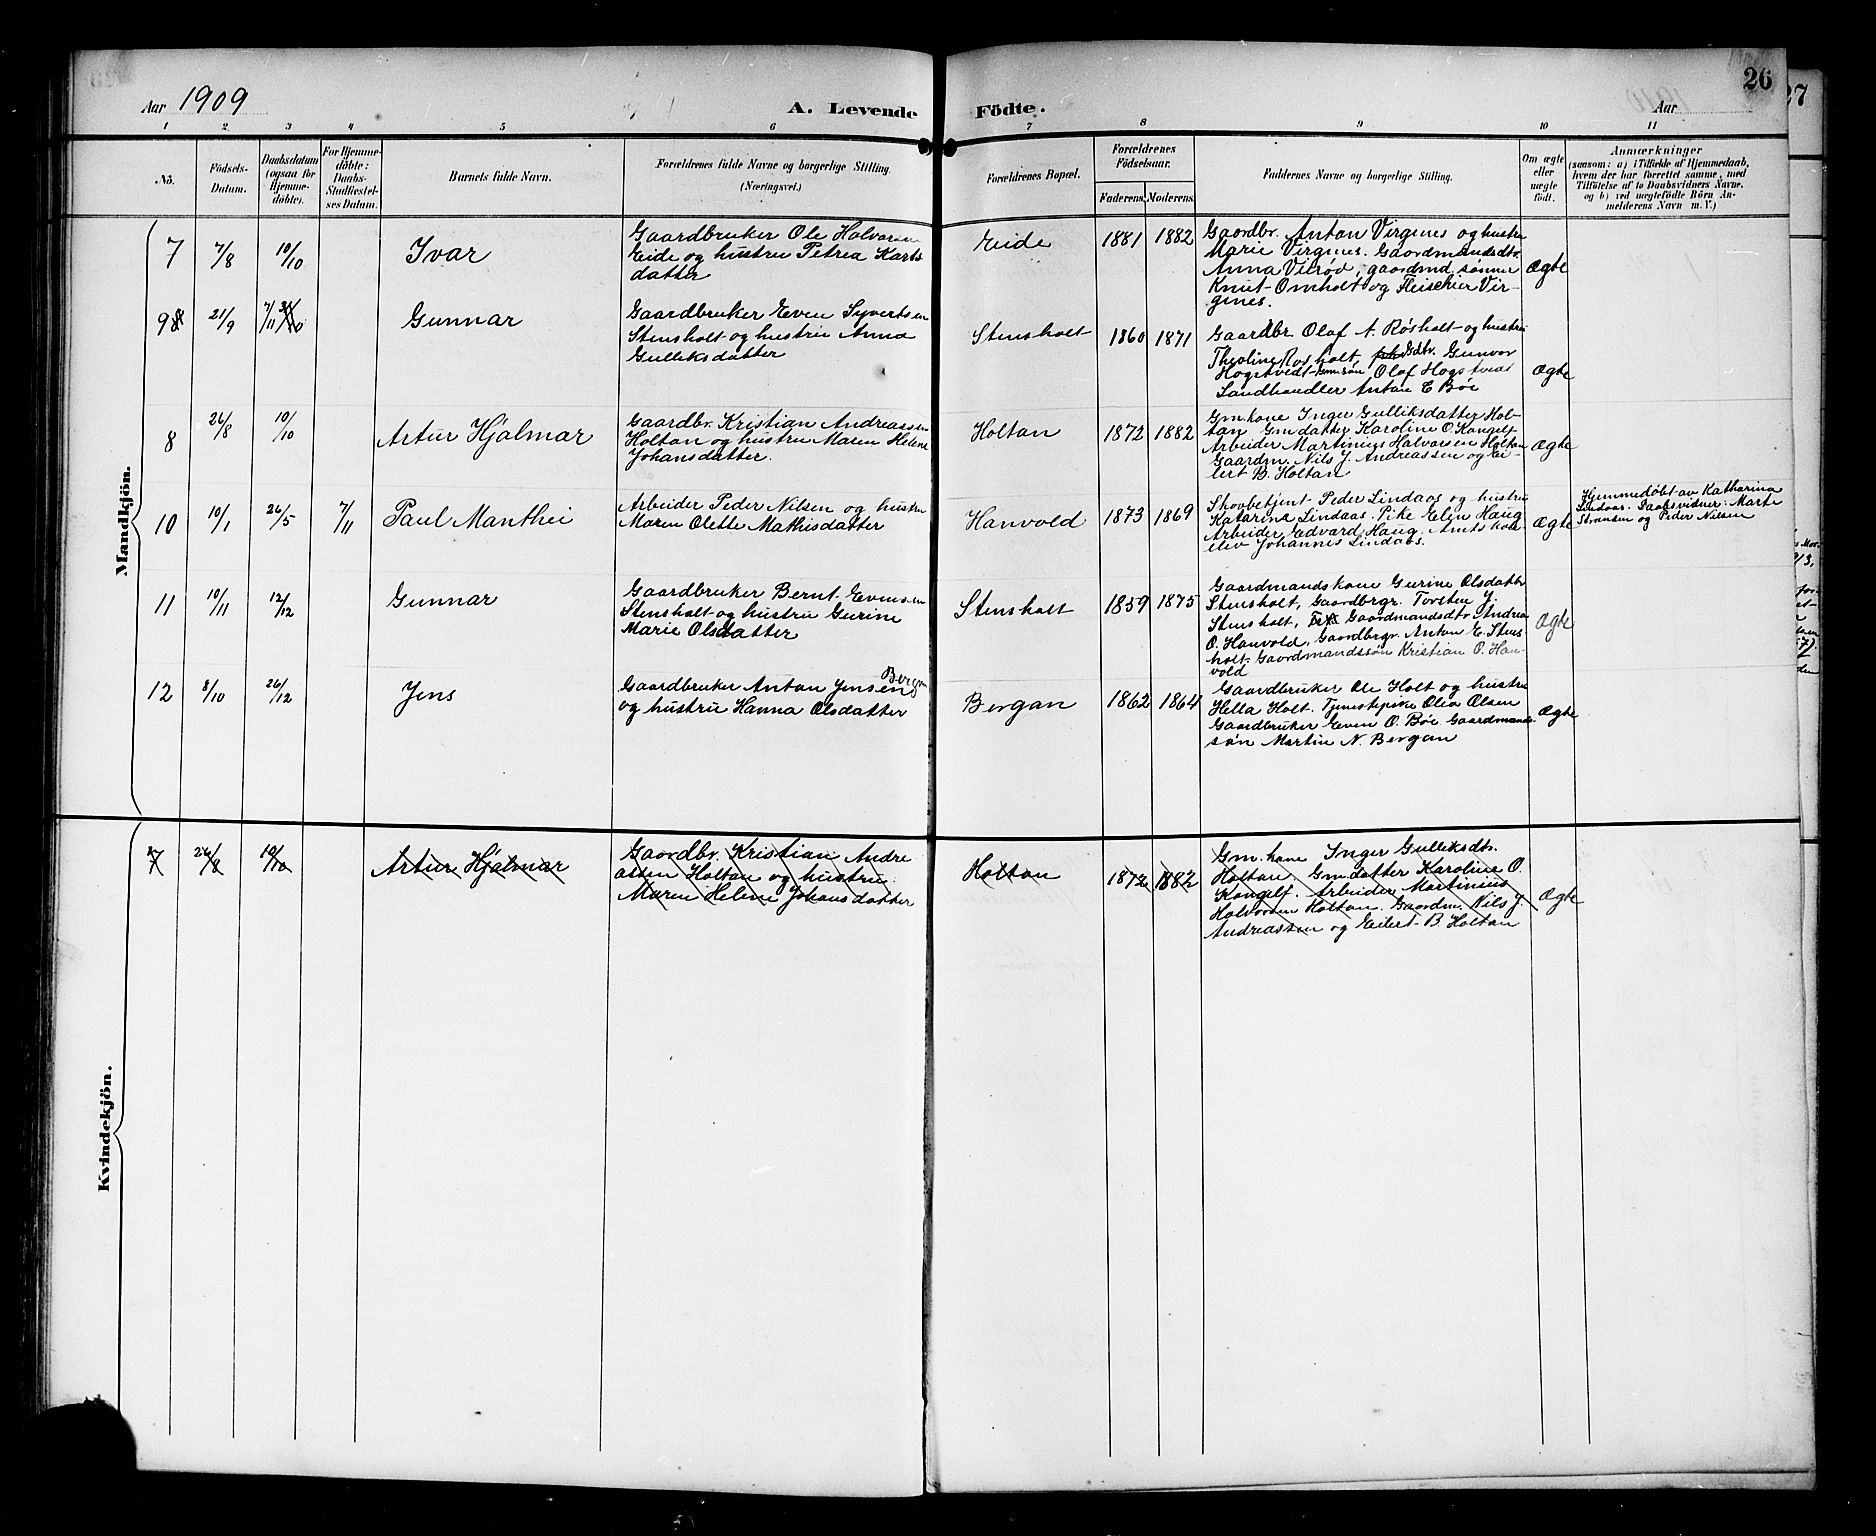 Aar 1909
A. Levende Födte.
Aar
26
27
1 2 3 4 5 6 7 8 9 10 11
Nö.
Födsels-
Datum.
Daabsdatum
(ogsaa for
Hjemme-
döbte).
For Hjemme-
döbte:
Daabs-
Stadfæstel-
ses Datum.
Barnets fulde Navn.
Forældrenes fulde Navne og borgerlige Stilling.
(Næringsvei.)
Forældrenes Bopæl.
Forældrenes
Födselsaar.
Faderens. Moderens.
Faddernes Navne og borgerlige Stilling.
Om ægte
eller
uægte
födt.
Anmærkninger
(saasom: a) i Tilfælde af Hjemmedaab,
hvem der har forrettet samme, med
Tilföielse af to Daabsvidners Navne.
og b) ved uægtefödte Börn An-
melderens Navn m. V.)
Mandkjön.
7 7/8 10/10 Ivar
Gaardbruker Ole Halvorsen
Eide og hustru Petrea Karls
datter
Eide 1881 1882
Gaardbr. Anton Virgenes og hustru
Marie Virgenes. Gaardmandsdtr
Anna Vilrød, gaardmd. sønner
Knut Omholt og Fleischer Vir-
genes.
Ægte
9 8 21/9 7/11 Gunnar
Gaardbruker Even Syvertsen
Stensholt og hustru Anna
Gulliksdatter
Stensholt 1860 1871
Gaardbr. Olaf A. Røsholt og hustru
Theoline Røsholt, Gdbr. Gunvor
Hogstvedt Gm.søn Olaf Hogstvedt
Landhandler Anton E Bøe
Ægte
8 26/8 10/10 Artur Hjalmar
Gaardbr. Kristian Andreassen
Holtan og hustru Maren Helene
Johansdatter.
Holtan 1872 1882
Gmkone Inger Gulliksdatter Hol-
tan Gmdatter Karoline O. Kongelf
Arbeider Martinius Halvorsen Holtan
Gaardm. Nils J. Andreassen og Ei-
lert B. Holtan
Ægte
10 10/1 26/5 7/11 Paul Manthei
Arbeider Peder Nilsen og hustru
Maren Olette Mathisdatter
Hanvold 1873 1869
Skovbetjent Peder Lindaas og hustru
Katarina Lindaas. Pike Elin Haug
Arbeider Edvard Haug. Amtskole
elev Johannes Lindaas.
Ægte
Hjemmedøbt av Katharina
Lindaas. Daabsvidner: Marte
og Peder Nilsen
11 10/11 12/12 Gunnar
Gaardbruker Bernt Evensen
Stensholt og hustru Gurine
Marie Olsdatter
Stensholt 1859 1875
Gaardmandskone Gurine Olsdatter
Stensholt, Gaardbrgr. Torsten J.
Stensholt, Gaardmandsdtr Andrea
O. Hanvold, Gaardbrgr. Anton E. Stens
holt. Gaardmandssøn Kristian O. Han-
vold
Ægte
12 8/10 26/12 Jens
Gaardbruker Anton Jensen Bergan
og hustru Hanna Olsdatter
Bergan 1862 1864
Gaardbruker Ole Holt og hustru
Hella Holt. Tjenestepike Olea Olsen
Gaardbruker Even O. Bøe Gaardmands-
søn Martin N. Bergan
Ægte
Kvindekjön.
7 26/8 10/10 Artur Hjalmar
Gaardbr. Kristian Andre
assen Holtan og hustru
Maren Helene Johansdatter
Holtan 1872 1882
Gm.kone Inger Gulliksdtr.
Holtan. Gm.datter Karoline O.
Kongelf. Arbeider Martinius
Halvorsen Holtan. Gaardm. Nils J.
Andreassen og Eilert B. Holtan
Ægte